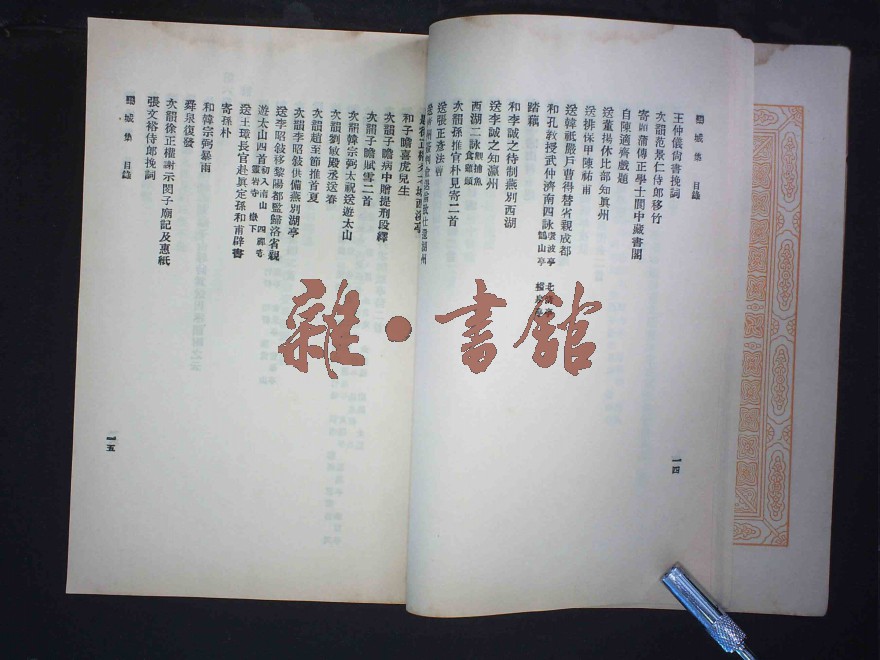 欒城集　目錄
王仲儀尙書挽詞
次韻范景仁侍郎移竹
寄如蒲傳正學士閬中藏書閣
自陳適齊戲題
送董揚休比部知眞州
送排保甲陳祐甫
送韓祇嚴戶曹得替省親成都
和孔敎授武仲濟南四詠 北
踏藕
和李誠之待制燕別西湖
送李誠之知瀛州
西湖二詠 觀捕魚 食雞頭
次韻孫推官朴見寄二首
送張正彥法曹
一四
和子瞻喜虎兒生
次韻子瞻病中贈提刑段繹
次韻子瞻賦雪二首
次韻韓宗弼太祝送遊太山
次韻劉敏殿丞送春
次韻趙至節推首夏
次韻李昭敍供備燕別湖亭
送李昭敍移黎陽都監歸洛省親
遊太山四首 初入南山 四禪寺 靈岩寺 嶽下
送王璋長官赴眞定孫和甫辟書
寄孫朴
和韓宗弼暴雨
舜泉復發
次韻徐正權謝示閔子廟記及惠紙
張文裕侍郎挽詞
欒城集　目錄
一五
雜・書館